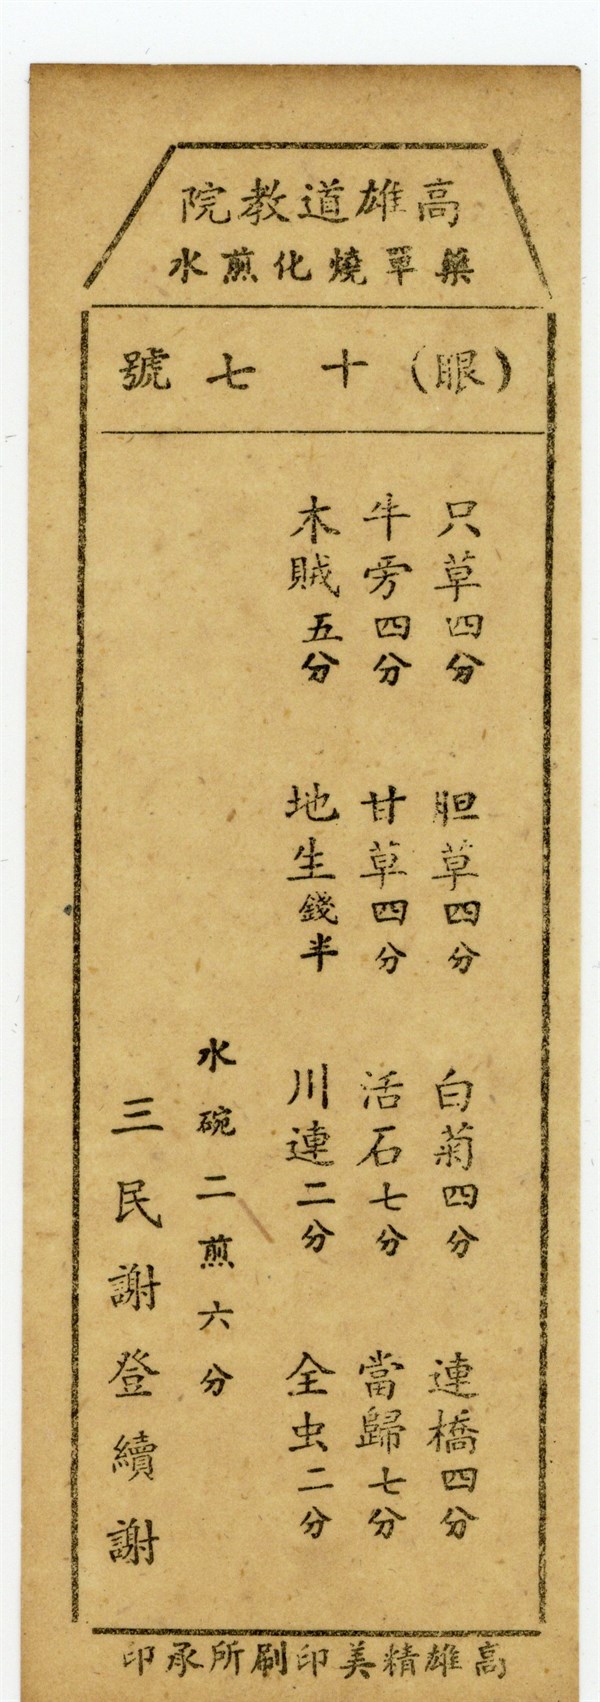 高雄道教院
藥單燒化煎水
(眼)十七號
只草四分 胆草四分 白菊四分 連橋四分
牛旁四分 甘草四分 活石七分 當歸七分
木賊五分 地生錢半 川連二分 全虫二分
水碗二煎六分
三民謝登續謝
高雄精美印刷所承印